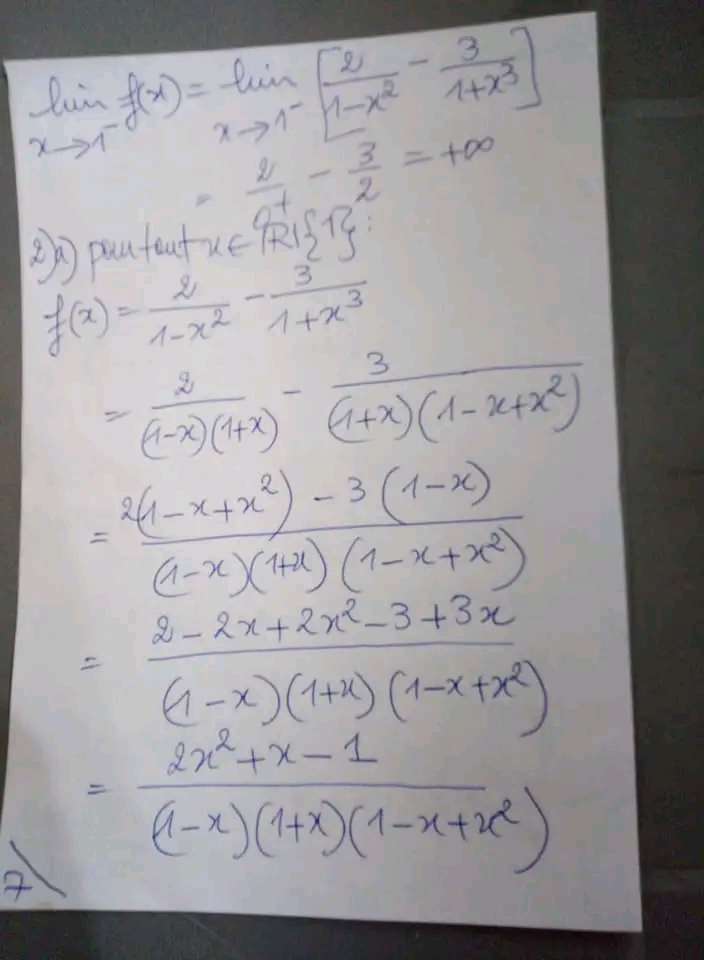 lim f(x) = lim [2/(1-x²) - 3/(1+x³)]
x→1⁻ x→1⁻
= 2/0⁺ - 3/2 = +∞
2)a) pour tout x ∈ ℝ\{1}:
f(x) = 2/(1-x²) - 3/(1+x³)
= 2/((1-x)(1+x)) - 3/((1+x)(1-x+x²))
= (2(1-x+x²) - 3(1-x))/((1-x)(1+x)(1-x+x²))
= (2-2x+2x²-3+3x)/((1-x)(1+x)(1-x+x²))
= (2x²+x-1)/((1-x)(1+x)(1-x+x²))
7